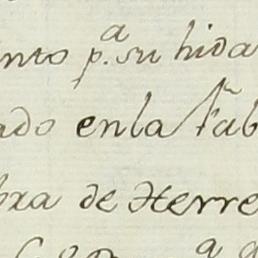 nto p.ª su hida
ado enla fab
bra de Herre